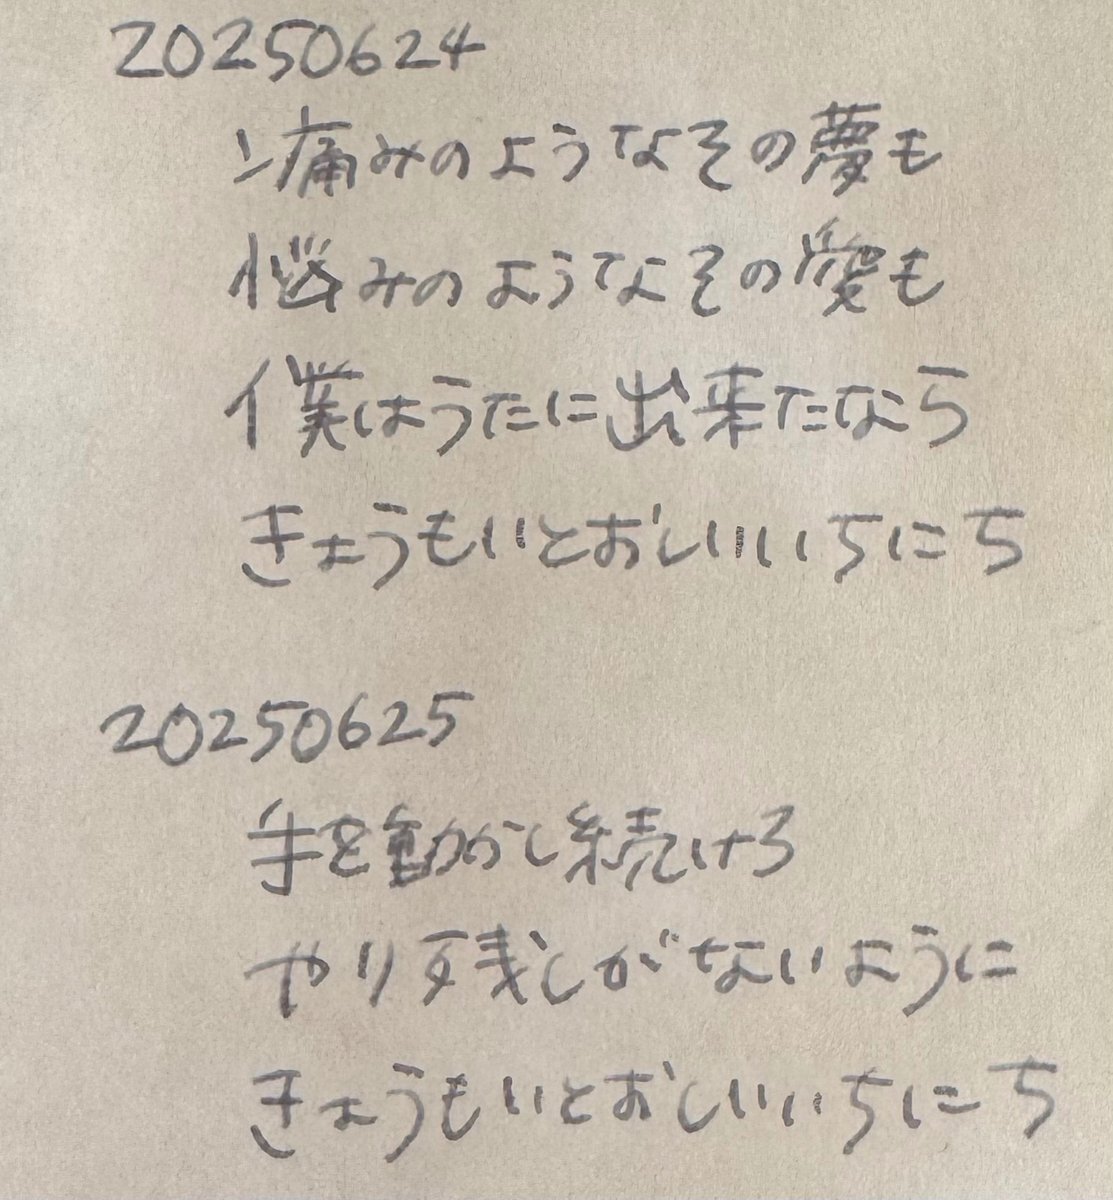 20250624
痛みのようなその夢も
悩みのようなその愛も
僕はうたに出来たなら
きょうもいとおしいいちにち
20250625
手を動かし続けろ
やり残しがないように
きょうもいとおしいいちにち